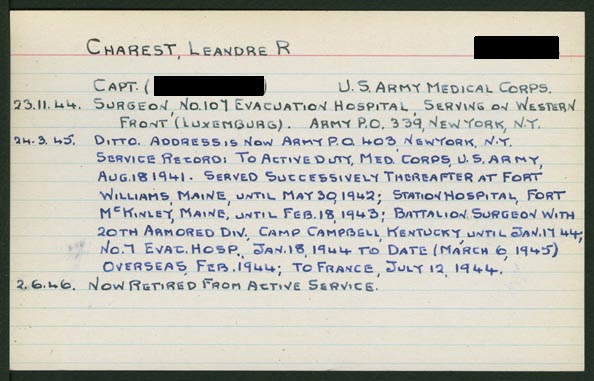 CHAREST, LEANDRE R
CAPT. ( ) U.S. ARMY MEDICAL CORPS.
23.11.44. SURGEON, NO. 107 EVACUATION HOSPITAL, SERVING ON WESTERN
FRONT (LUXEMBURG). ARMY P.O. 339, NEW YORK, N.Y.
24.3.45. DITTO. ADDRESS IS NOW ARMY P.O. 403, NEW YORK, N.Y.
SERVICE RECORD: TO ACTIVE DUTY, MED. CORPS, U.S. ARMY,
AUG. 18 1941. SERVED SUCCESSIVELY THEREAFTER AT FORT
WILLIAMS, MAINE, UNTIL MAY 30, 1942; STATION HOSPITAL, FORT
MCKINLEY, MAINE, UNTIL FEB. 18, 1943; BATTALION SURGEON WITH
20TH ARMORED DIV., CAMP CAMPBELL, KENTUCKY, UNTIL JAN. 17 44;
NO. 7 EVAC. HOSP., JAN. 18, 1944 TO DATE (MARCH 6, 1945)
OVERSEAS, FEB. 1944; TO FRANCE, JULY 12, 1944.
2.6.46. NOW RETIRED FROM ACTIVE SERVICE.